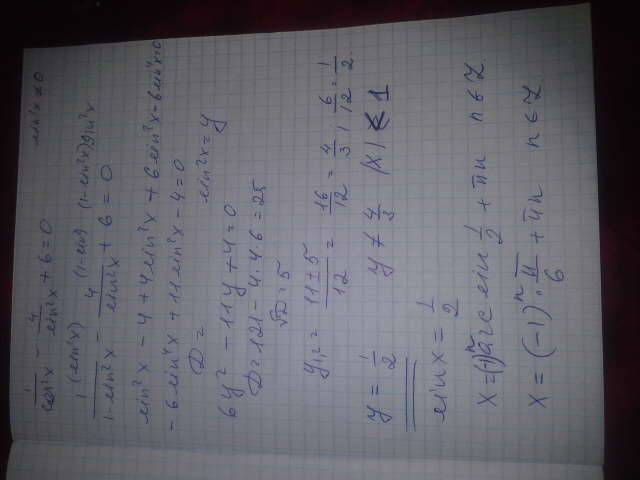 1/cos²x - 4/sin²x + 6 = 0    sin²x ≠ 0
1 (sin²x)    4 (1-sin²)    (1-sin²x) sin²x
1/1-sin²x - 4/sin²x + 6 = 0
sin²x - 4 + 4sin²x + 6sin²x - 6sin⁴x = 0
-6sin⁴x + 11sin²x - 4 = 0
D =    sin²x = y
6y² - 11y + 4 = 0
D = 121 - 4·4·6 = 25
√D = 5
y₁,₂ = 11±5/12 = 16/12 = 4/3 ; 6/12 = 1/2.
y = 1/2    y ≠ 4/3    |x| < 1
sin x = 1/2
x = (-1)ⁿ arcsin 1/2 + πn    n ∈ Z.
x = (-1)ⁿ · π/6 + πn    n ∈ Z.